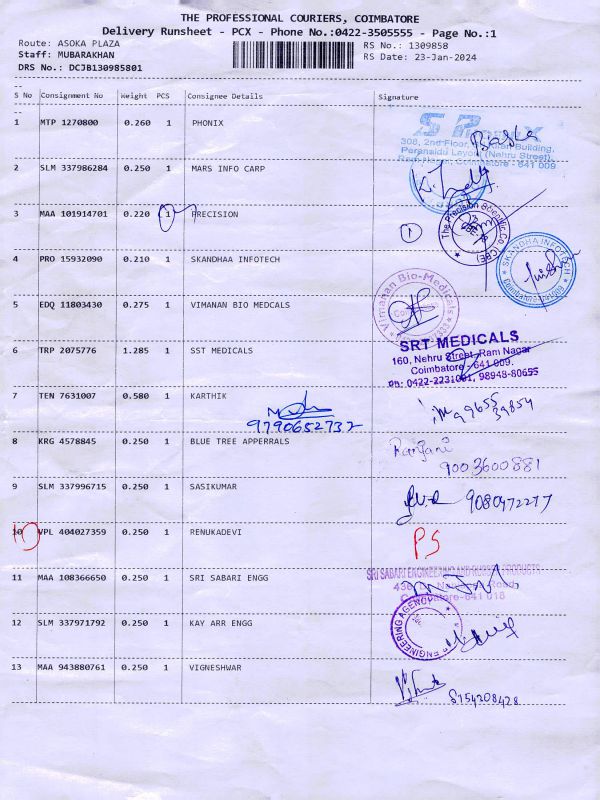 THE PROFESSIONAL COURIERS, COIMBATORE
Delivery Runsheet - PCX - Phone No.:0422-3505555 - Page No.:1
Route: ASOKA PLAZA
RS No.: 1309858
Staff: MUBARAKHAN
RS Date: 23-Jan-2024
DRS No.: DCJB130985801
S No Consignment No Weight PCS Consignee Details Signature
1 MTP 1270800 0.260 1 PHONIX
308, 2nd Floor, Building,
Peranaidu Layout (Nehru Street),
Ram Nagar, Coimbatore - 641 009
2 SLM 337986284 0.250 1 MARS INFO CARP
3 MAA 101914701 0.220 1 PRECISION
1
The Precision Scientific Co. (CBE)
4 PRO 15932090 0.210 1 SKANDHAA INFOTECH
SKANDHA INFOTECH
5 EDQ 11803430 0.275 1 VIMANAN BIO MEDCALS
Vimanan Bio-Medicals
6 TRP 2075776 1.285 1 SST MEDICALS
SRT MEDICALS
160, Nehru Street, Ram Nagar
Coimbatore - 641 009.
Ph: 0422-2231001, 98948-80655
7 TEN 7631007 0.580 1 KARTHIK
9790652732
99655
39854
8 KRG 4578845 0.250 1 BLUE TREE APPERRALS
Ranjani
9003600881
9 SLM 337996715 0.250 1 SASIKUMAR
9080472277
10 VPL 404027359 0.250 1 RENUKADEVI
PS
11 MAA 108366650 0.250 1 SRI SABARI ENGG
SRI SABARI ENGINEERING AND RUBBER PRODUCTS
Coimbatore-641 018
12 SLM 337971792 0.250 1 KAY ARR ENGG
ENGINEERING AGENCY
13 MAA 943880761 0.250 1 VIGNESHWAR
8754208428